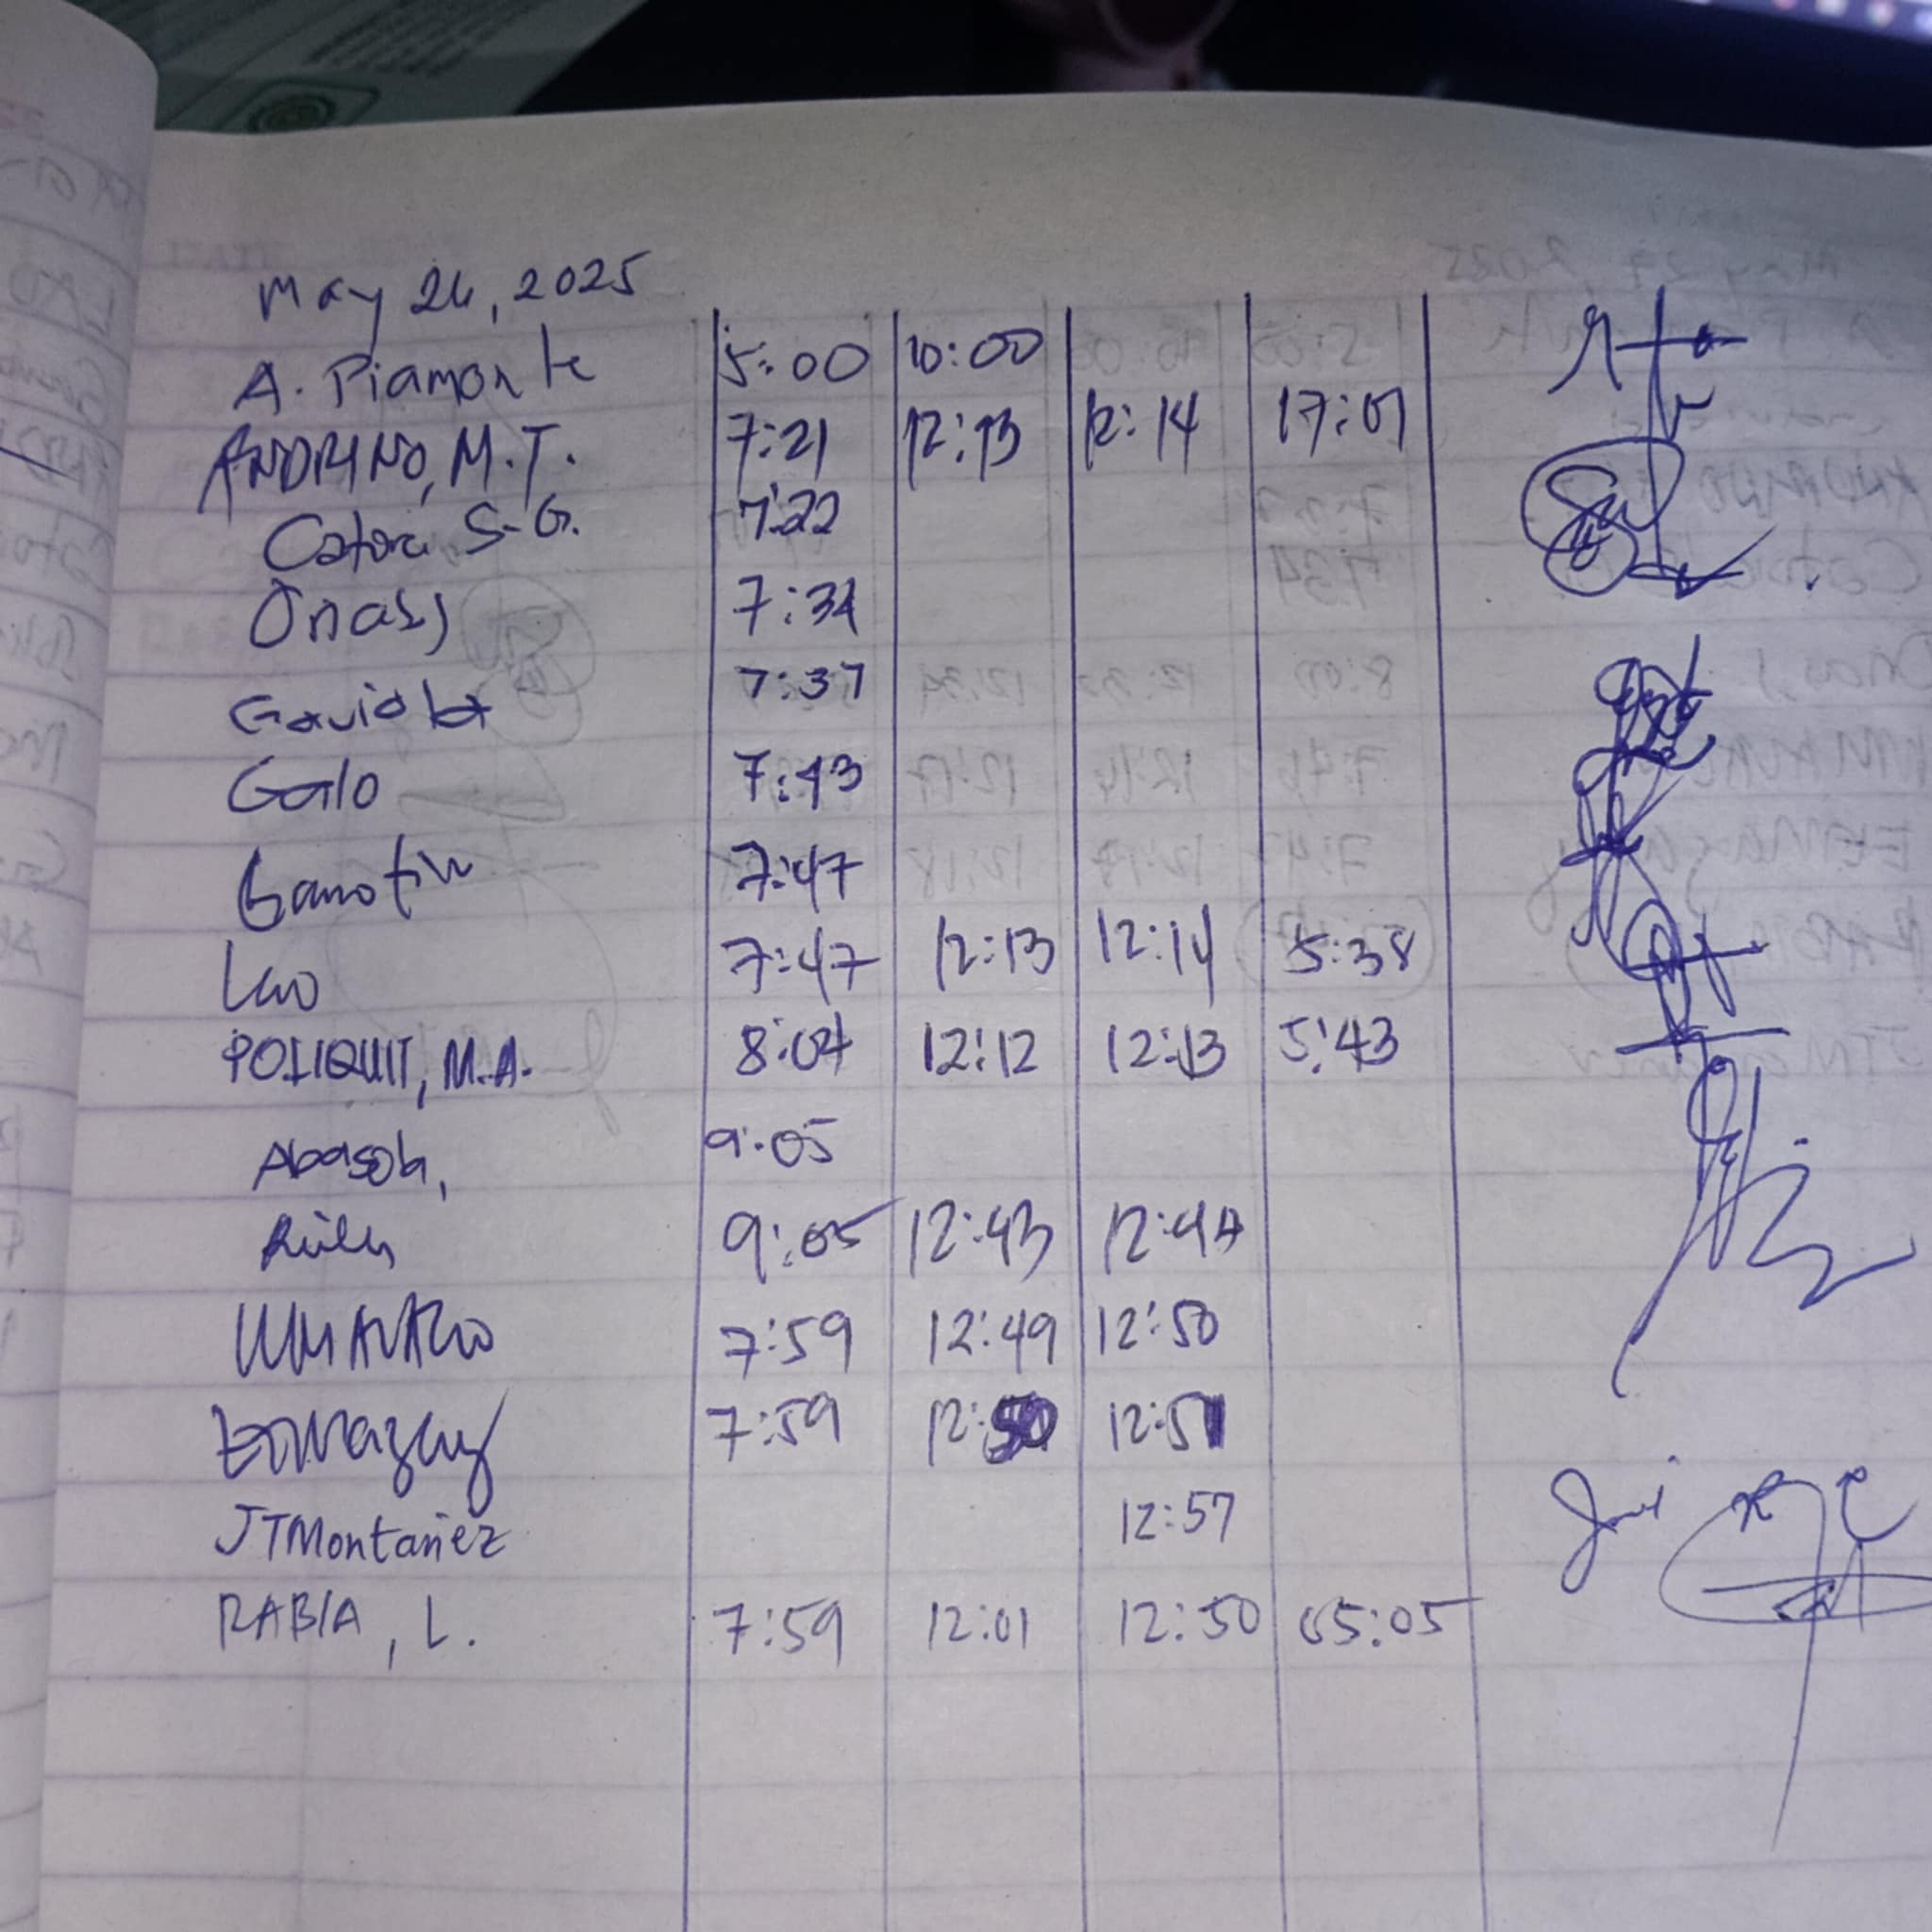 May 26, 2025
A. Piamonte 5:00 10:00
ANDRINO, M.T. 7:21 12:13 12:14 17:01
S.G. 7:22
Onass 7:34
Gaviola 7:37
Galo 7:43
Ganotin 7:47
Lao 7:47 12:13 12:14 5:38
POLIQUIT, M.A. 8:04 12:12 12:13 5:43
Abasola, 9:05
9:05 12:43 12:44
7:59 12:49 12:50
7:59 12:50 12:51
JTMontañez 12:57
RABIA, L. 7:59 12:01 12:50 05:05